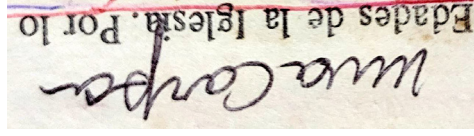 Edades de la Iglesia. Por lo
Carpa